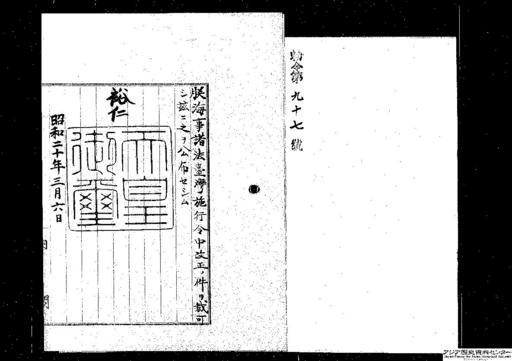 勅令第九十七號
朕海事諸法臺灣施行令中改正ノ件ヲ裁可
シ茲ニ之ヲ公布セシム
裕仁
天皇
御璽
昭和二十年三月六日
アジア歴史資料センター